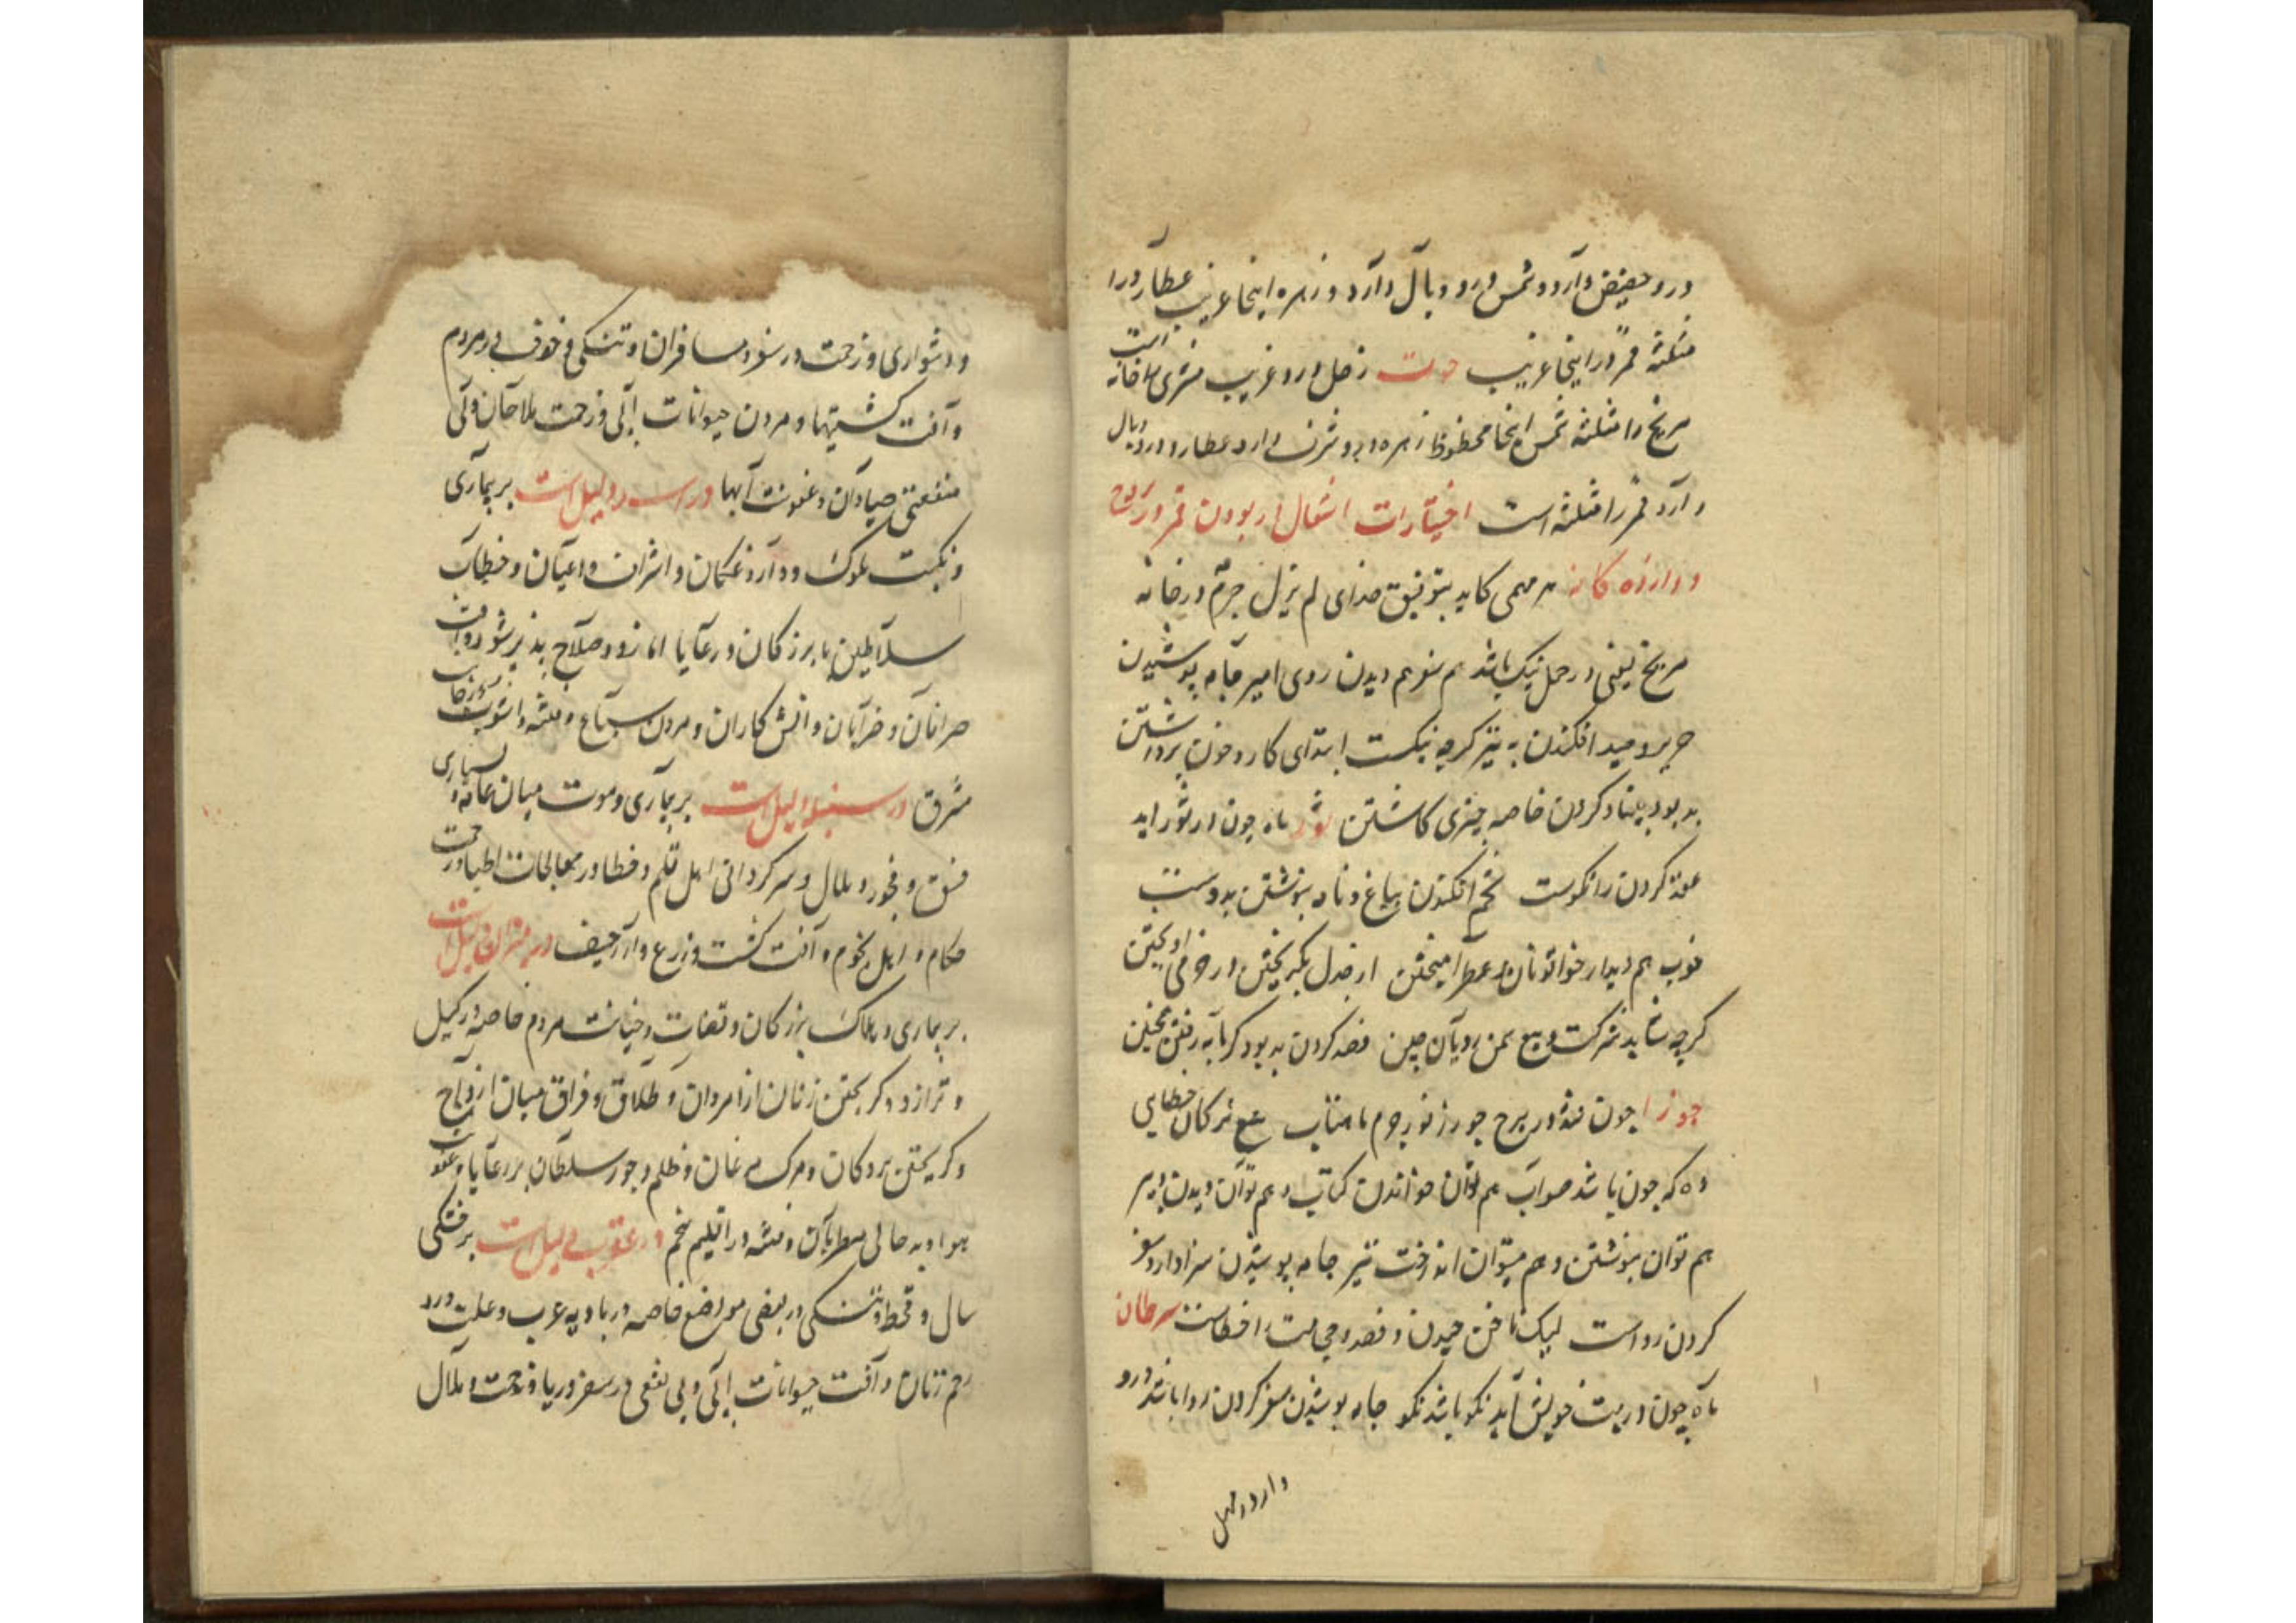 درو حضیض دارد و شمس درو وبال دارد و زهره اینجا غریب عطارد را
مثلثه قمر در اینجا غریب حوت زحل درو غریب مشتری را خانه است
مریخ را مثلثه شمس اینجا محظوظ زهره درو شرف دارد عطارد درو وبال
دارد قمر را مثلثه است اختیارات اشغال از بودن قمر در بروج
دوازده گانه هر مهمی کاید بتوفیق خدای لم یزل جرم در خانه
مریخ یعنی در حمل نیک باشد هم سفر هم دیدن روی امیر جامه پوشیدن
حریر و صید افکندن به تیر کرچه نیکست ابتدای کار و خون برداشتن
بد بود بنیاد کردن خاصه چیزی کاشتن ثور ماه چون در ثور اید
عقد کردن را نکوست تخم افکندن بباغ و نامه بنوشتن بدوست
خوب هم دیدار خواتونان و عطر آمیختن از جدل بگریختن در خرمی اویختن
کرچه شاید شرکت و بیع سمن رویان چین فصد کردن بد بود کرمابه رفتن همچنین
جوزا چون فتد در برج جوزا نور جرم ماهتاب بیع ترکان خطایی
ده که چون باشد صواب هم توان خواندن کتاب و هم توان دیدن دبیر
هم توان بنوشتن و هم میتوان انداخت تیر جامه پوشیدن سزاوار و سفر
کردن رواست لیک ناخن چیدن و فصد و حجامت را خطاست سرطان
ماه چون در بیت خویش آید نکو باشد نکو جامه پوشیدن سفر کردن روا باشد درو
دارو و مسهل
و دشواری و زحمت در سفر و مسافران و تنکی و خوف در مردم
و آفت کشتیها و مردن حیوانات آبی و زحمت ملاحان و بی
منفعتی صیادان و عفونت آبها در اسد دلیل است بر بیماری
و نکبت ملوک و اشراف و اعیان و خطاب
سلاطین با بزرکان و رعایا اما زود صلاح پذیر شود و آفت
صرافان و ضرابان و آتش کاران و مردن سباع و فتنه و آشوب
مشرق در سنبله دلیل است بر بیماری و موت میان عامه و بسیاری
فسق و فجور و ملال و سرکردانی اهل قلم و خطا در معالجات اطبا و زحمت
حکام و اهل نجوم و آفت کشت و زرع و اراجیف در میزان دلیل است
بر بیماری و هلاک بزرکان و قضات و خیانت مردم خاصه در کیل
و ترازو و کریختن زنان از مردان و طلاق و فراق میان ازواج
و کریختن بردکان و مرک مرغان و ظلم و جور سلطان بر رعایا و عفونت
هوا و بد حالی مطربان و فتنه در اقلیم پنجم در عقرب دلیل است بر خشکی
سال و قحط و تنکی در بعضی مواضع خاصه در بادیه عرب و علت درد
رحم زنان و آفت حیوانات آبی و بی نفعی در سفر دریا و زحمت و ملال